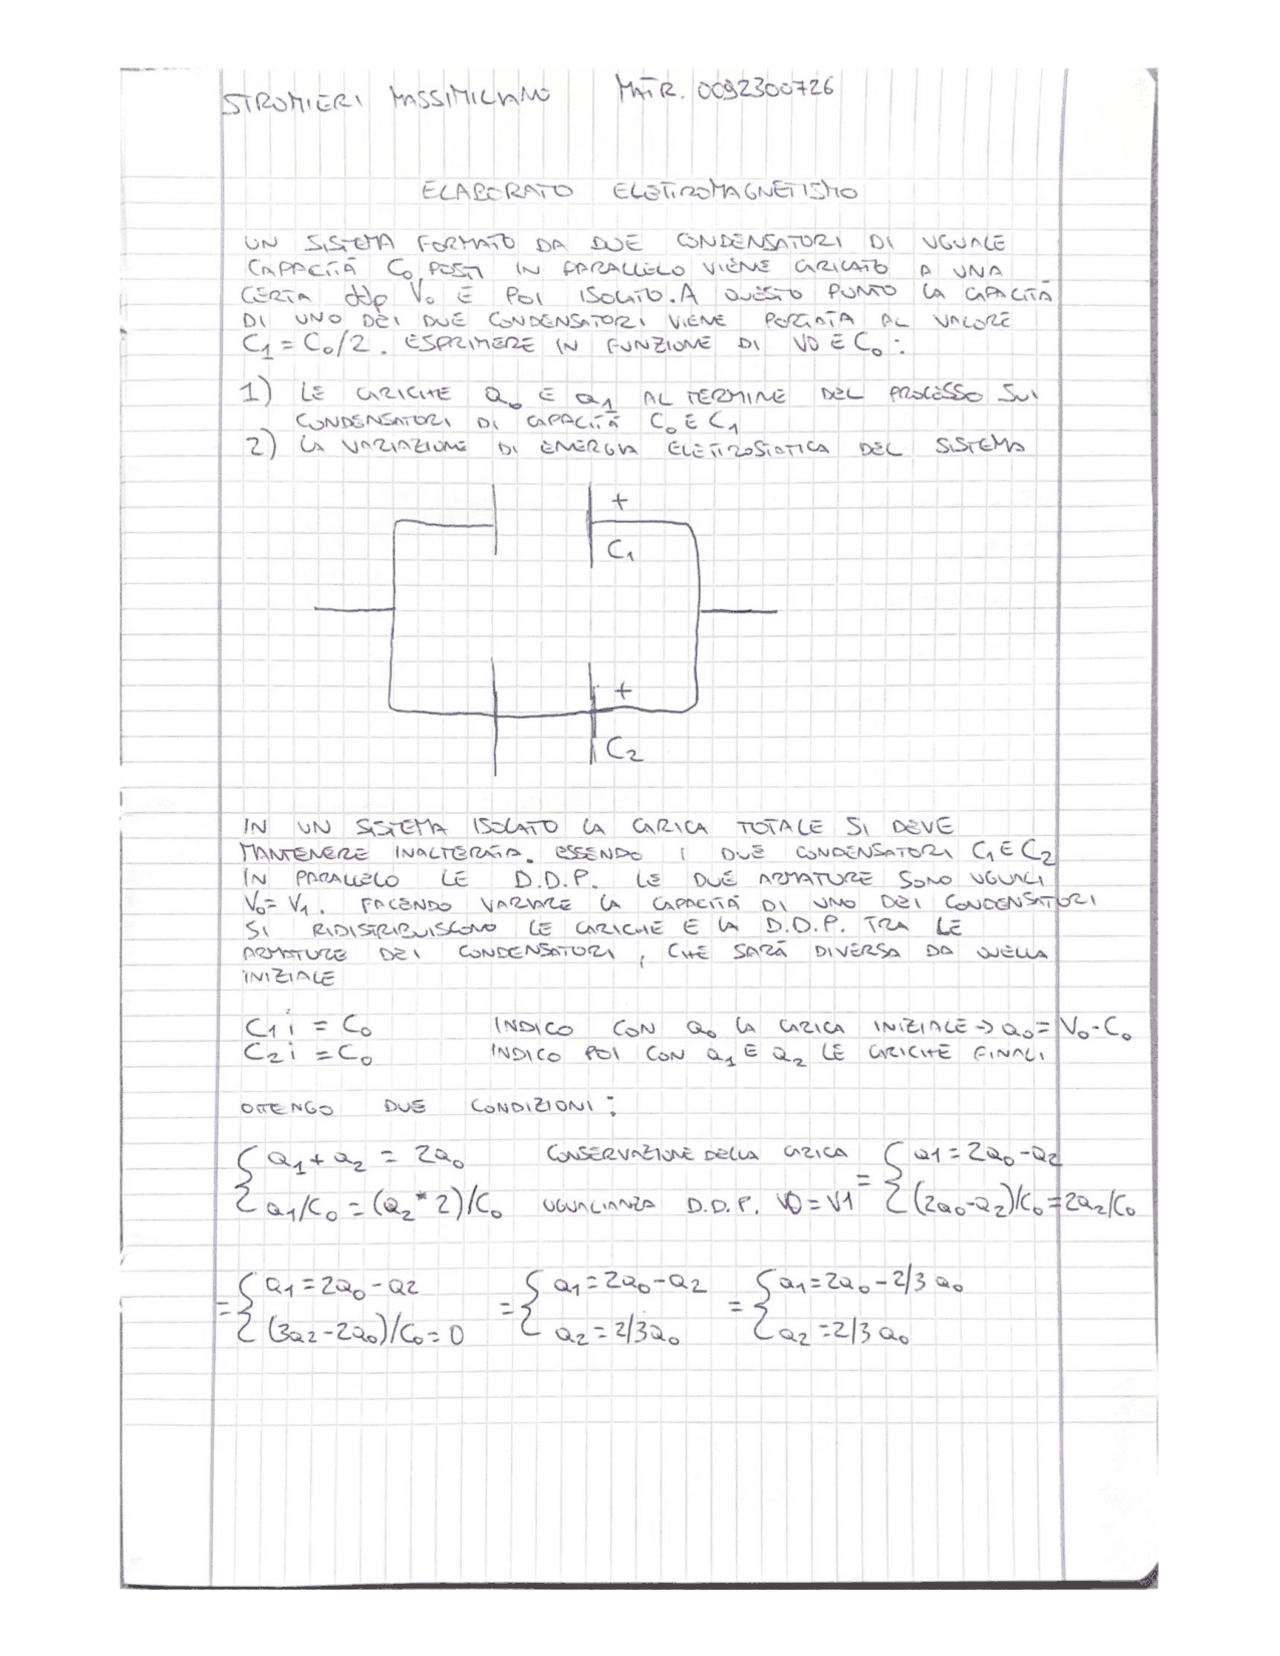 STROMIERI MASSIMILIANO MATR. 0092300726
ELABORATO ELETTROMAGNETISMO
UN SISTEMA FORMATO DA DUE CONDENSATORI DI UGUALE
CAPACITÀ C₀ POSTI IN PARALLELO VIENE CARICATO A UNA
CERTA ddp V₀ E POI ISOLATO. A QUESTO PUNTO LA CAPACITÀ
DI UNO DEI DUE CONDENSATORI VIENE PORTATA AL VALORE
C₁ = C₀/2. ESPRIMERE IN FUNZIONE DI V0 E C₀:
1) LE CARICHE Q₀ E Q₁ AL TERMINE DEL PROCESSO SUI
CONDENSATORI DI CAPACITÀ C₀ E C₁
2) LA VARIAZIONE DI ENERGIA ELETTROSTATICA DEL SISTEMA
+
C₁
+
C₂
IN UN SISTEMA ISOLATO LA CARICA TOTALE SI DEVE
MANTENERE INALTERATA. ESSENDO I DUE CONDENSATORI C₁ E C₂
IN PARALLELO LE D.D.P. LE DUE ARMATURE SONO UGUALI
V₀ = V₁. FACENDO VARIARE LA CAPACITÀ DI UNO DEI CONDENSATORI
SI RIDISTRIBUISCONO LE CARICHE E LA D.D.P. TRA LE
ARMATURE DEI CONDENSATORI, CHE SARÀ DIVERSA DA QUELLA
INIZIALE
C₁i = C₀ INDICO CON Q₀ LA CARICA INIZIALE → Q₀ = V₀-C₀
C₂i = C₀ INDICO POI CON Q₁ E Q₂ LE CARICHE FINALI
OTTENGO DUE CONDIZIONI:
{ Q₁ + Q₂ = 2Q₀ CONSERVAZIONE DELLA CARICA { Q1 = 2Q₀ - Q2
{ Q₁/C₀ = (Q₂ * 2)/C₀ UGUALIANZA D.D.P. V0 = V1 = { (2Q₀-Q₂)/C₀ = 2Q₂/C₀
= { Q₁ = 2Q₀ - Q2 = { Q₁ = 2Q₀ - Q₂ = { Q₁ = 2Q₀ - 2/3 Q₀
{ (3Q2 - 2Q₀)/C₀ = 0 { Q₂ = 2/3Q₀ { Q₂ = 2/3 Q₀